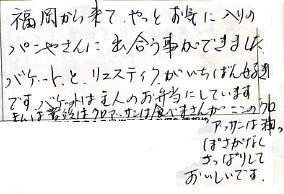 福岡から来て、やっとお気に入りの
パンやさんに出合う事ができました
バゲットと、リュスティクがいちばん好き
です。バゲットは主人のお弁当にしています
私は普段はクロワッサンは食べませんがここのクロ
アッサンは油っ
ぽさがなく
さっぱりして
おいしいです。